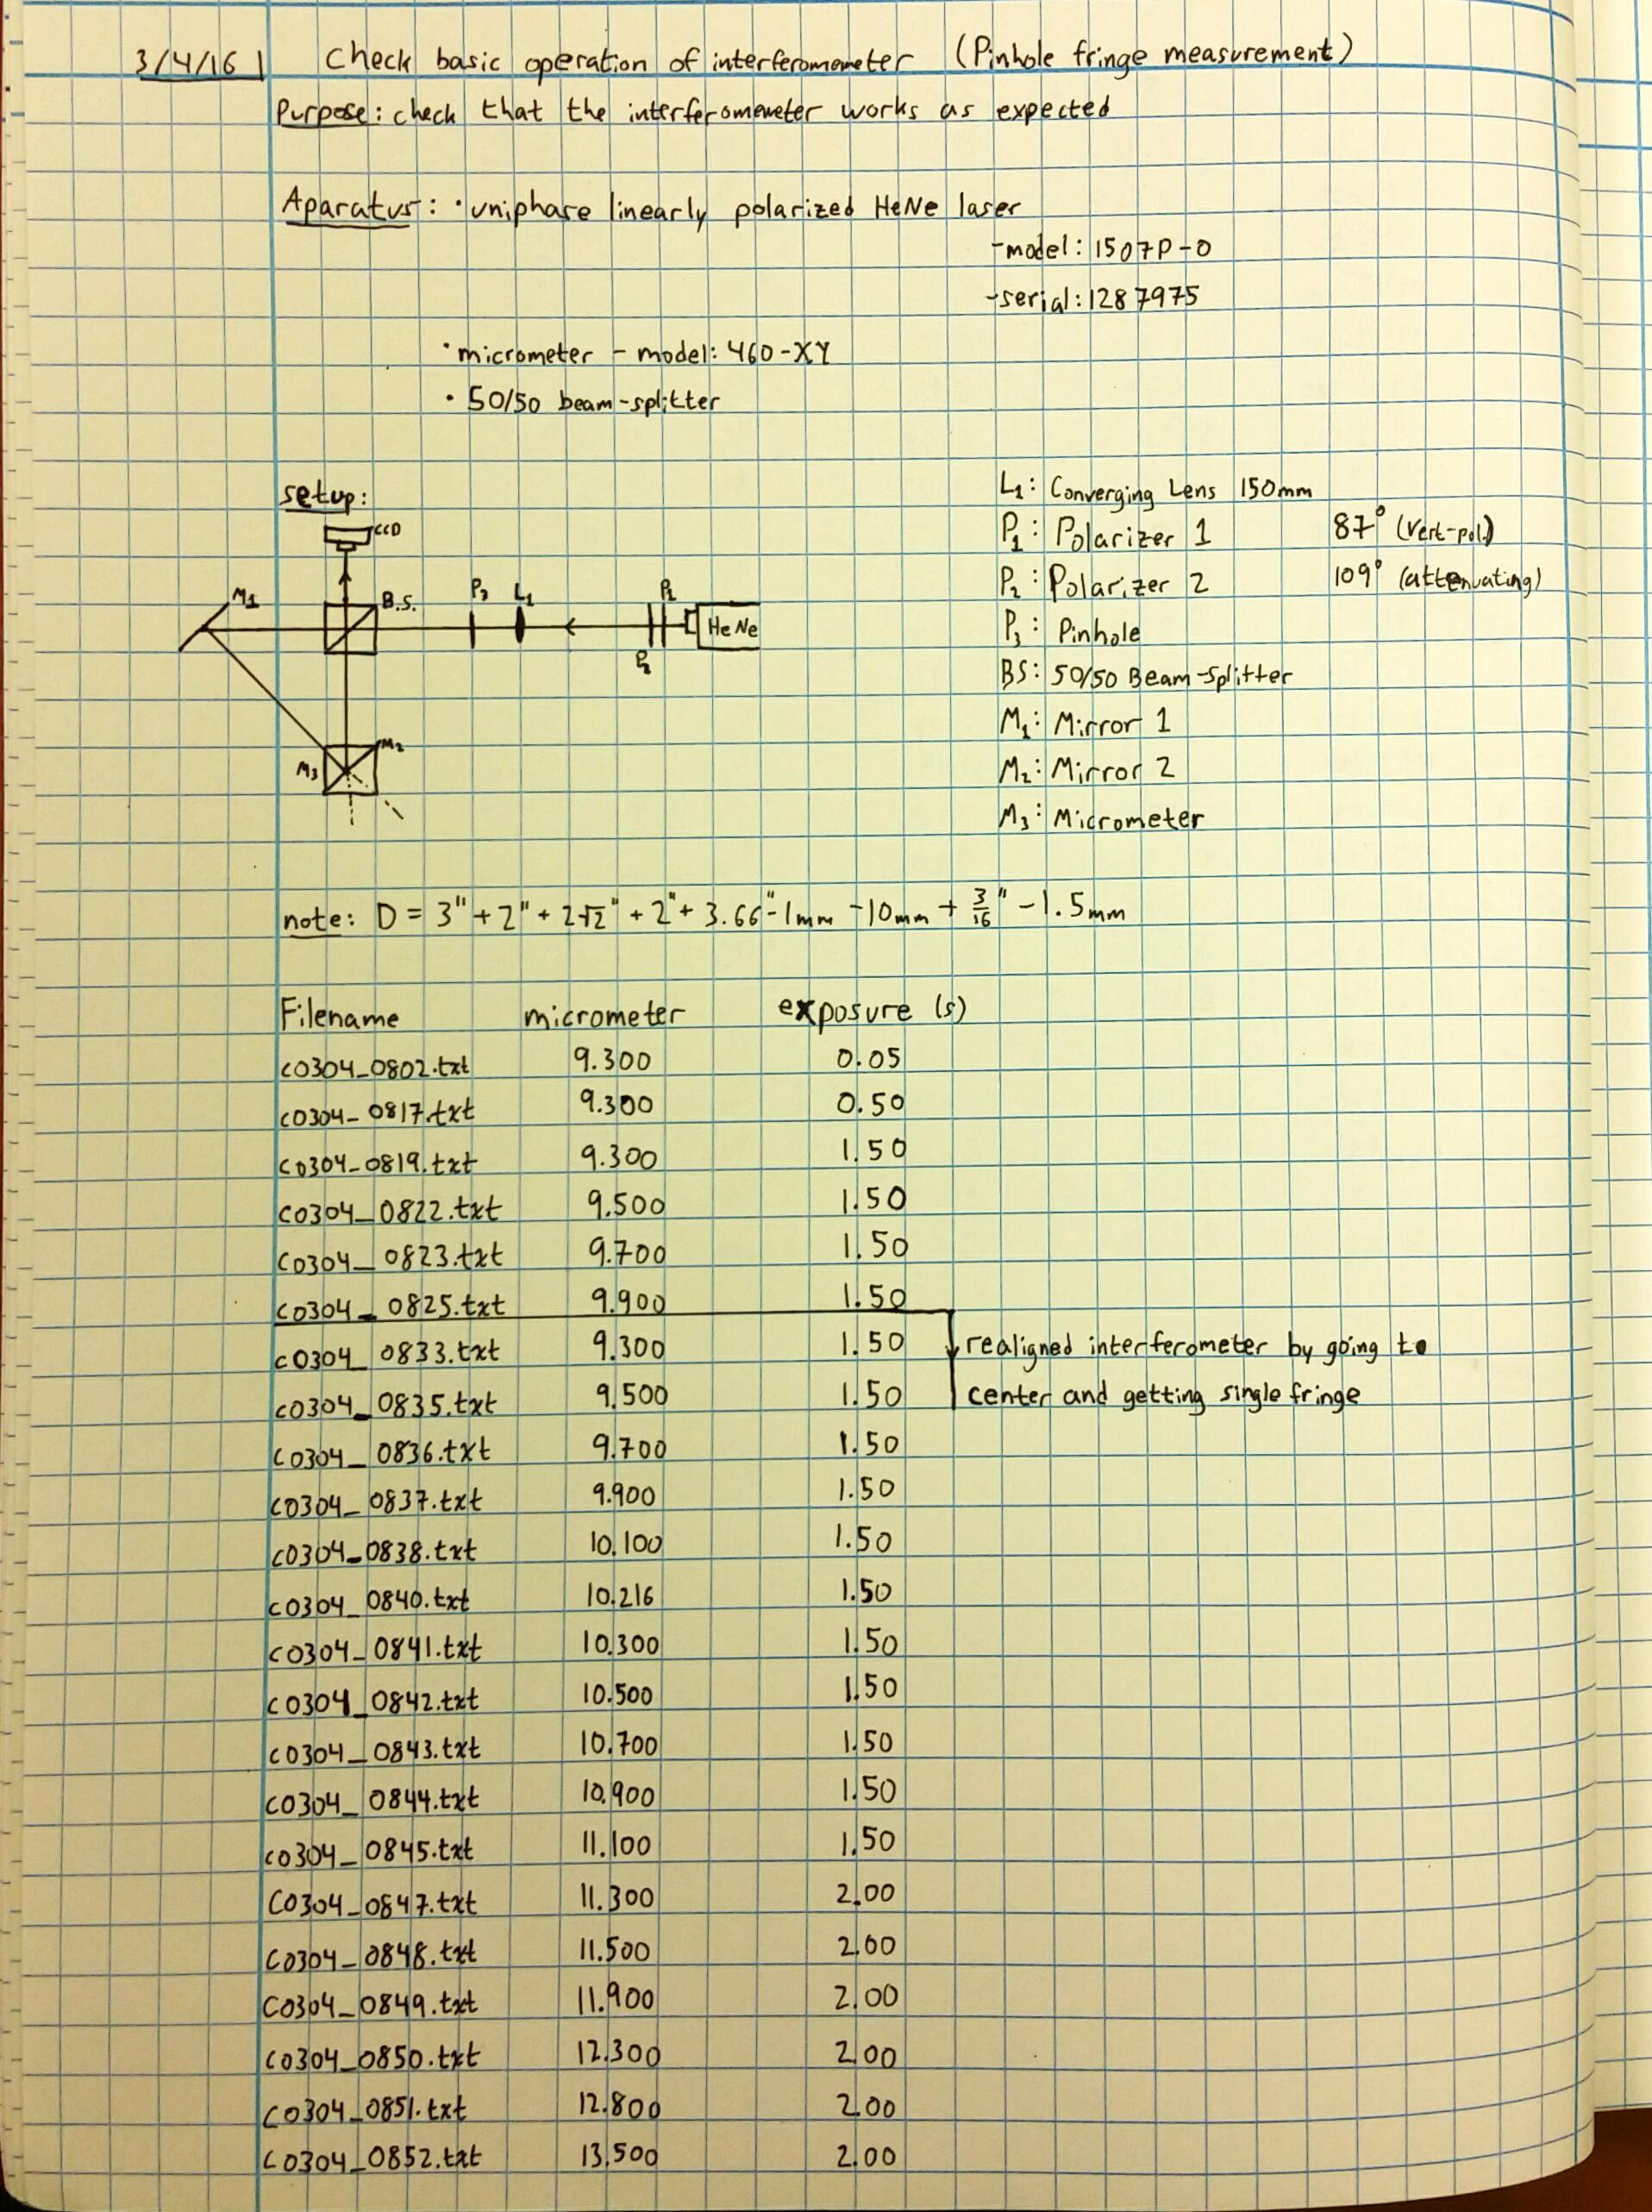 3/4/16 | Check basic operation of interferomemeter (Pinhole fringe measurement)
Purpose: check that the interferomemeter works as expected
Aparatus: • uniphase linearly polarized HeNe laser
-model: 1507P-0
-serial: 1287975
• micrometer - model: 460-XY
• 50/50 beam-splitter
setup:
CCD
M1
B.S.
P3
L1
P1
HeNe
P2
M2
M3
L1: Converging Lens 150mm
P1: Polarizer 1 87° (Vert-pol.)
P2: Polarizer 2 109° (attenuating)
P3: Pinhole
BS: 50/50 Beam-splitter
M1: Mirror 1
M2: Mirror 2
M3: Micrometer
note: D = 3" + 2" + 2√2" + 2" + 3.66" - 1mm - 10mm + 3/16" - 1.5mm
Filename micrometer exposure (s)
c0304_0802.txt 9.300 0.05
c0304_0817.txt 9.300 0.50
c0304_0819.txt 9.300 1.50
c0304_0822.txt 9.500 1.50
c0304_0823.txt 9.700 1.50
c0304_0825.txt 9.900 1.50
c0304_0833.txt 9.300 1.50 realigned interferometer by going to
c0304_0835.txt 9.500 1.50 center and getting single fringe
c0304_0836.txt 9.700 1.50
c0304_0837.txt 9.900 1.50
c0304_0838.txt 10.100 1.50
c0304_0840.txt 10.216 1.50
c0304_0841.txt 10.300 1.50
c0304_0842.txt 10.500 1.50
c0304_0843.txt 10.700 1.50
c0304_0844.txt 10.900 1.50
c0304_0845.txt 11.100 1.50
c0304_0847.txt 11.300 2.00
c0304_0848.txt 11.500 2.00
c0304_0849.txt 11.900 2.00
c0304_0850.txt 12.300 2.00
c0304_0851.txt 12.800 2.00
c0304_0852.txt 13.500 2.00